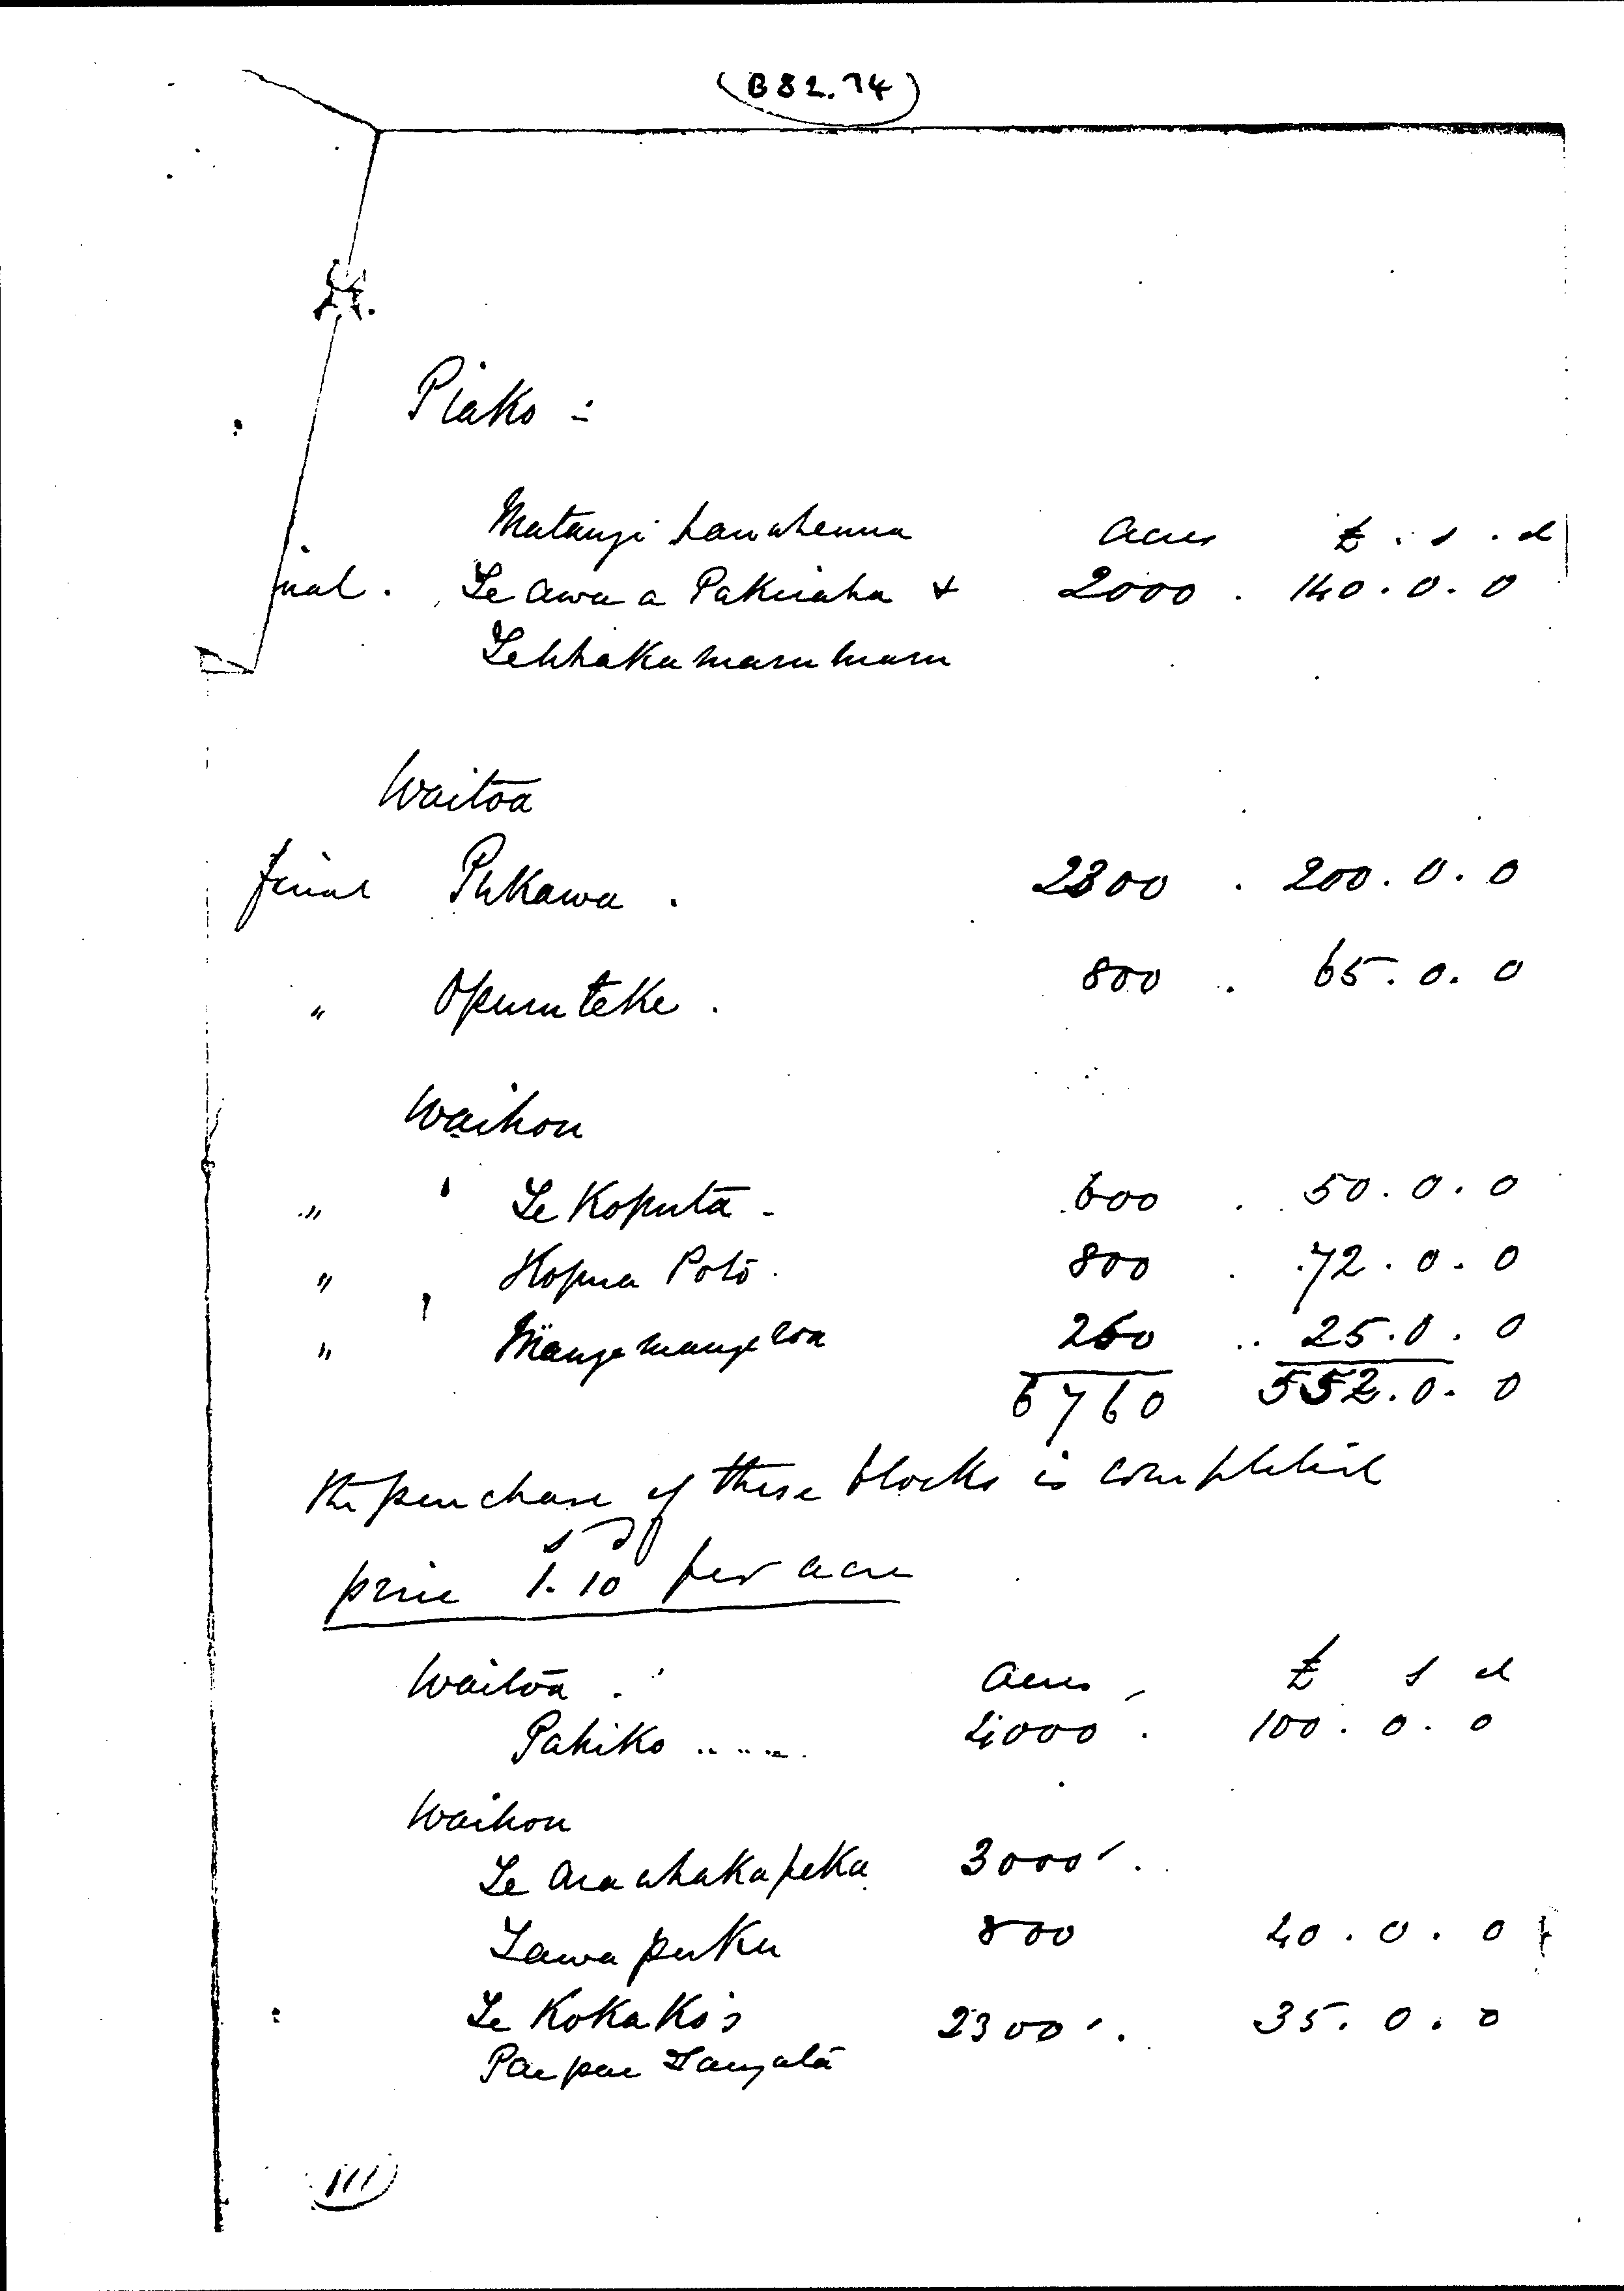 (B82.74)
Piako :
Matangi hauahenna acres £ . s . d
inal . Te Awa a Pakiraha + 2000 . 140 . 0 . 0
Te Whakamarumaru
Waitoa
final Pukawa . 2300 . 200 . 0 . 0
" Opuruteke . 800 . 65 . 0 . 0
Waihou
" Te Koputa - 600 . 50 . 0 . 0
" Hopua Poto . 800 . 72 . 0 . 0
" Mangemangeroa 260 .. 25 . 0 . 0
6760 552 . 0 . 0
The purchase of these blocks is completed
s d
price 1. 10 per acre
Waitoa . acres £ s d
Pahiko ..... 2,000 . 100 . 0 . 0
Waihou
Te Ara whakapeka 3000 .
Tawa puku 800 40 . 0 . 0
Te Kokako's 2300 . 35 . 0 . 0
Pae pae Tangata
111